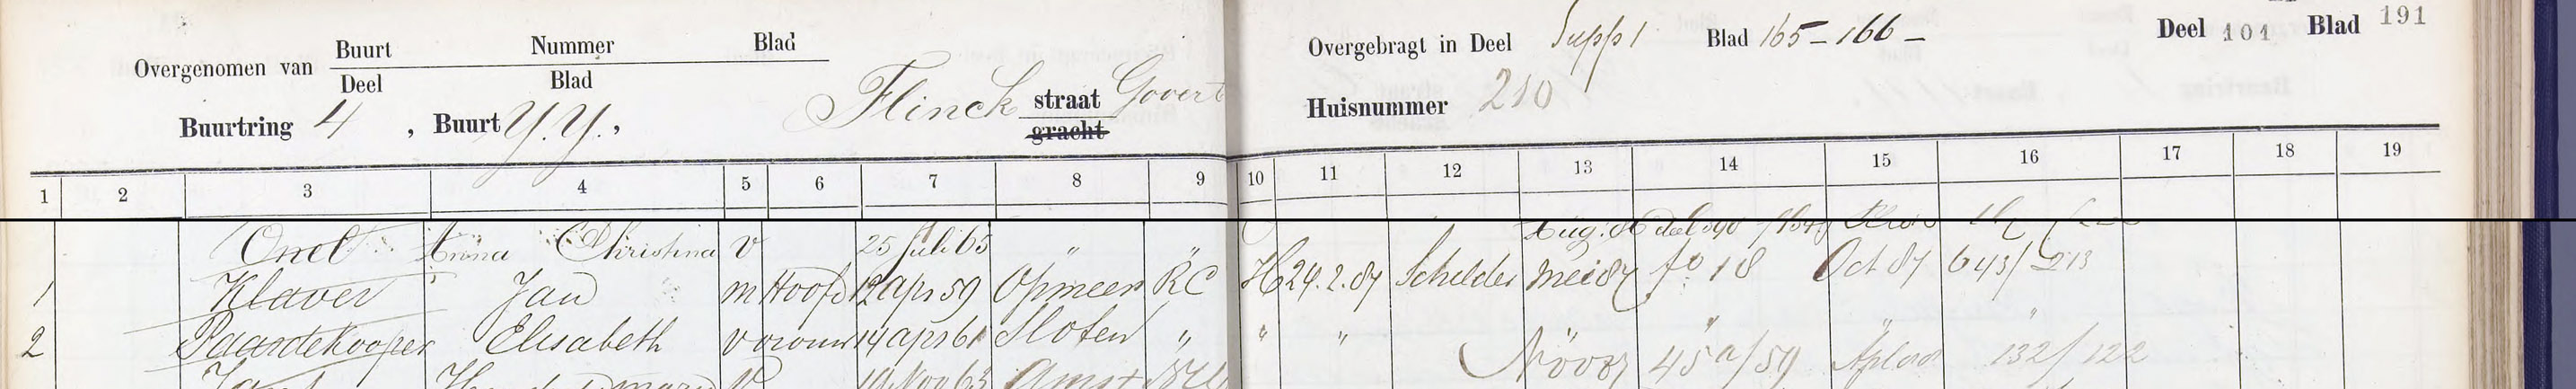 Overgenomen van Buurt Nummer Blad
Deel Blad
Buurtring 4, Buurt Y.Y., Flinck straat Govert
gracht
Overgebragt in Deel Suppl Blad 165-166- Deel 101 Blad 191
Huisnummer 210
1 2 3 4 5 6 7 8 9 10 11 12 13 14 15 16 17 18 19
Onel Anna Christina v 25 Juli 65 " "
1 Klaver Jan m Hoofd 12 apr 59 Opmeer RC H 24.2.87 Schilder mei 87 fo 18 Oct 87 643/213
2 Paardekooper Elisabeth v vrouw 14 apr 61 Sloten " " " " " "
45a/59 132/122